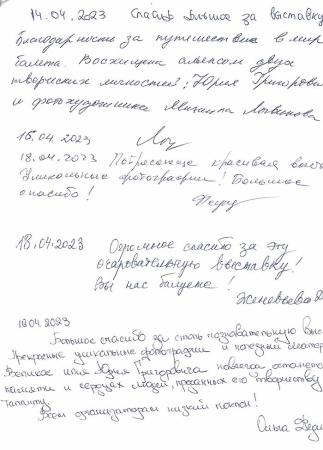 14.04.2023 Спасибо большое за выставку
Благодарность за путешествие в мир
балета. Восхищена альянсом двух
творческих личностей: Юрия Григорови
и фотохудожника Михаила Логвинова
16.04.2023
18.04.2023 Потрясающе красивая выст
Уникальные фотографии! Большое
спасибо!
18.04.2023 Огромное спасибо за эту
очаровательную выставку!
Вы нас балуете!
Женевьева
19.04.2023
Большое спасибо за столь познавательную выс
Прекрасные уникальные фотографии и полезный матер
Великое имя Юрия Григоровича навсегда останется
памяти и сердцах людей, преданных его творчеству
таланту.
Всем организаторам низкий поклон!
Ольга